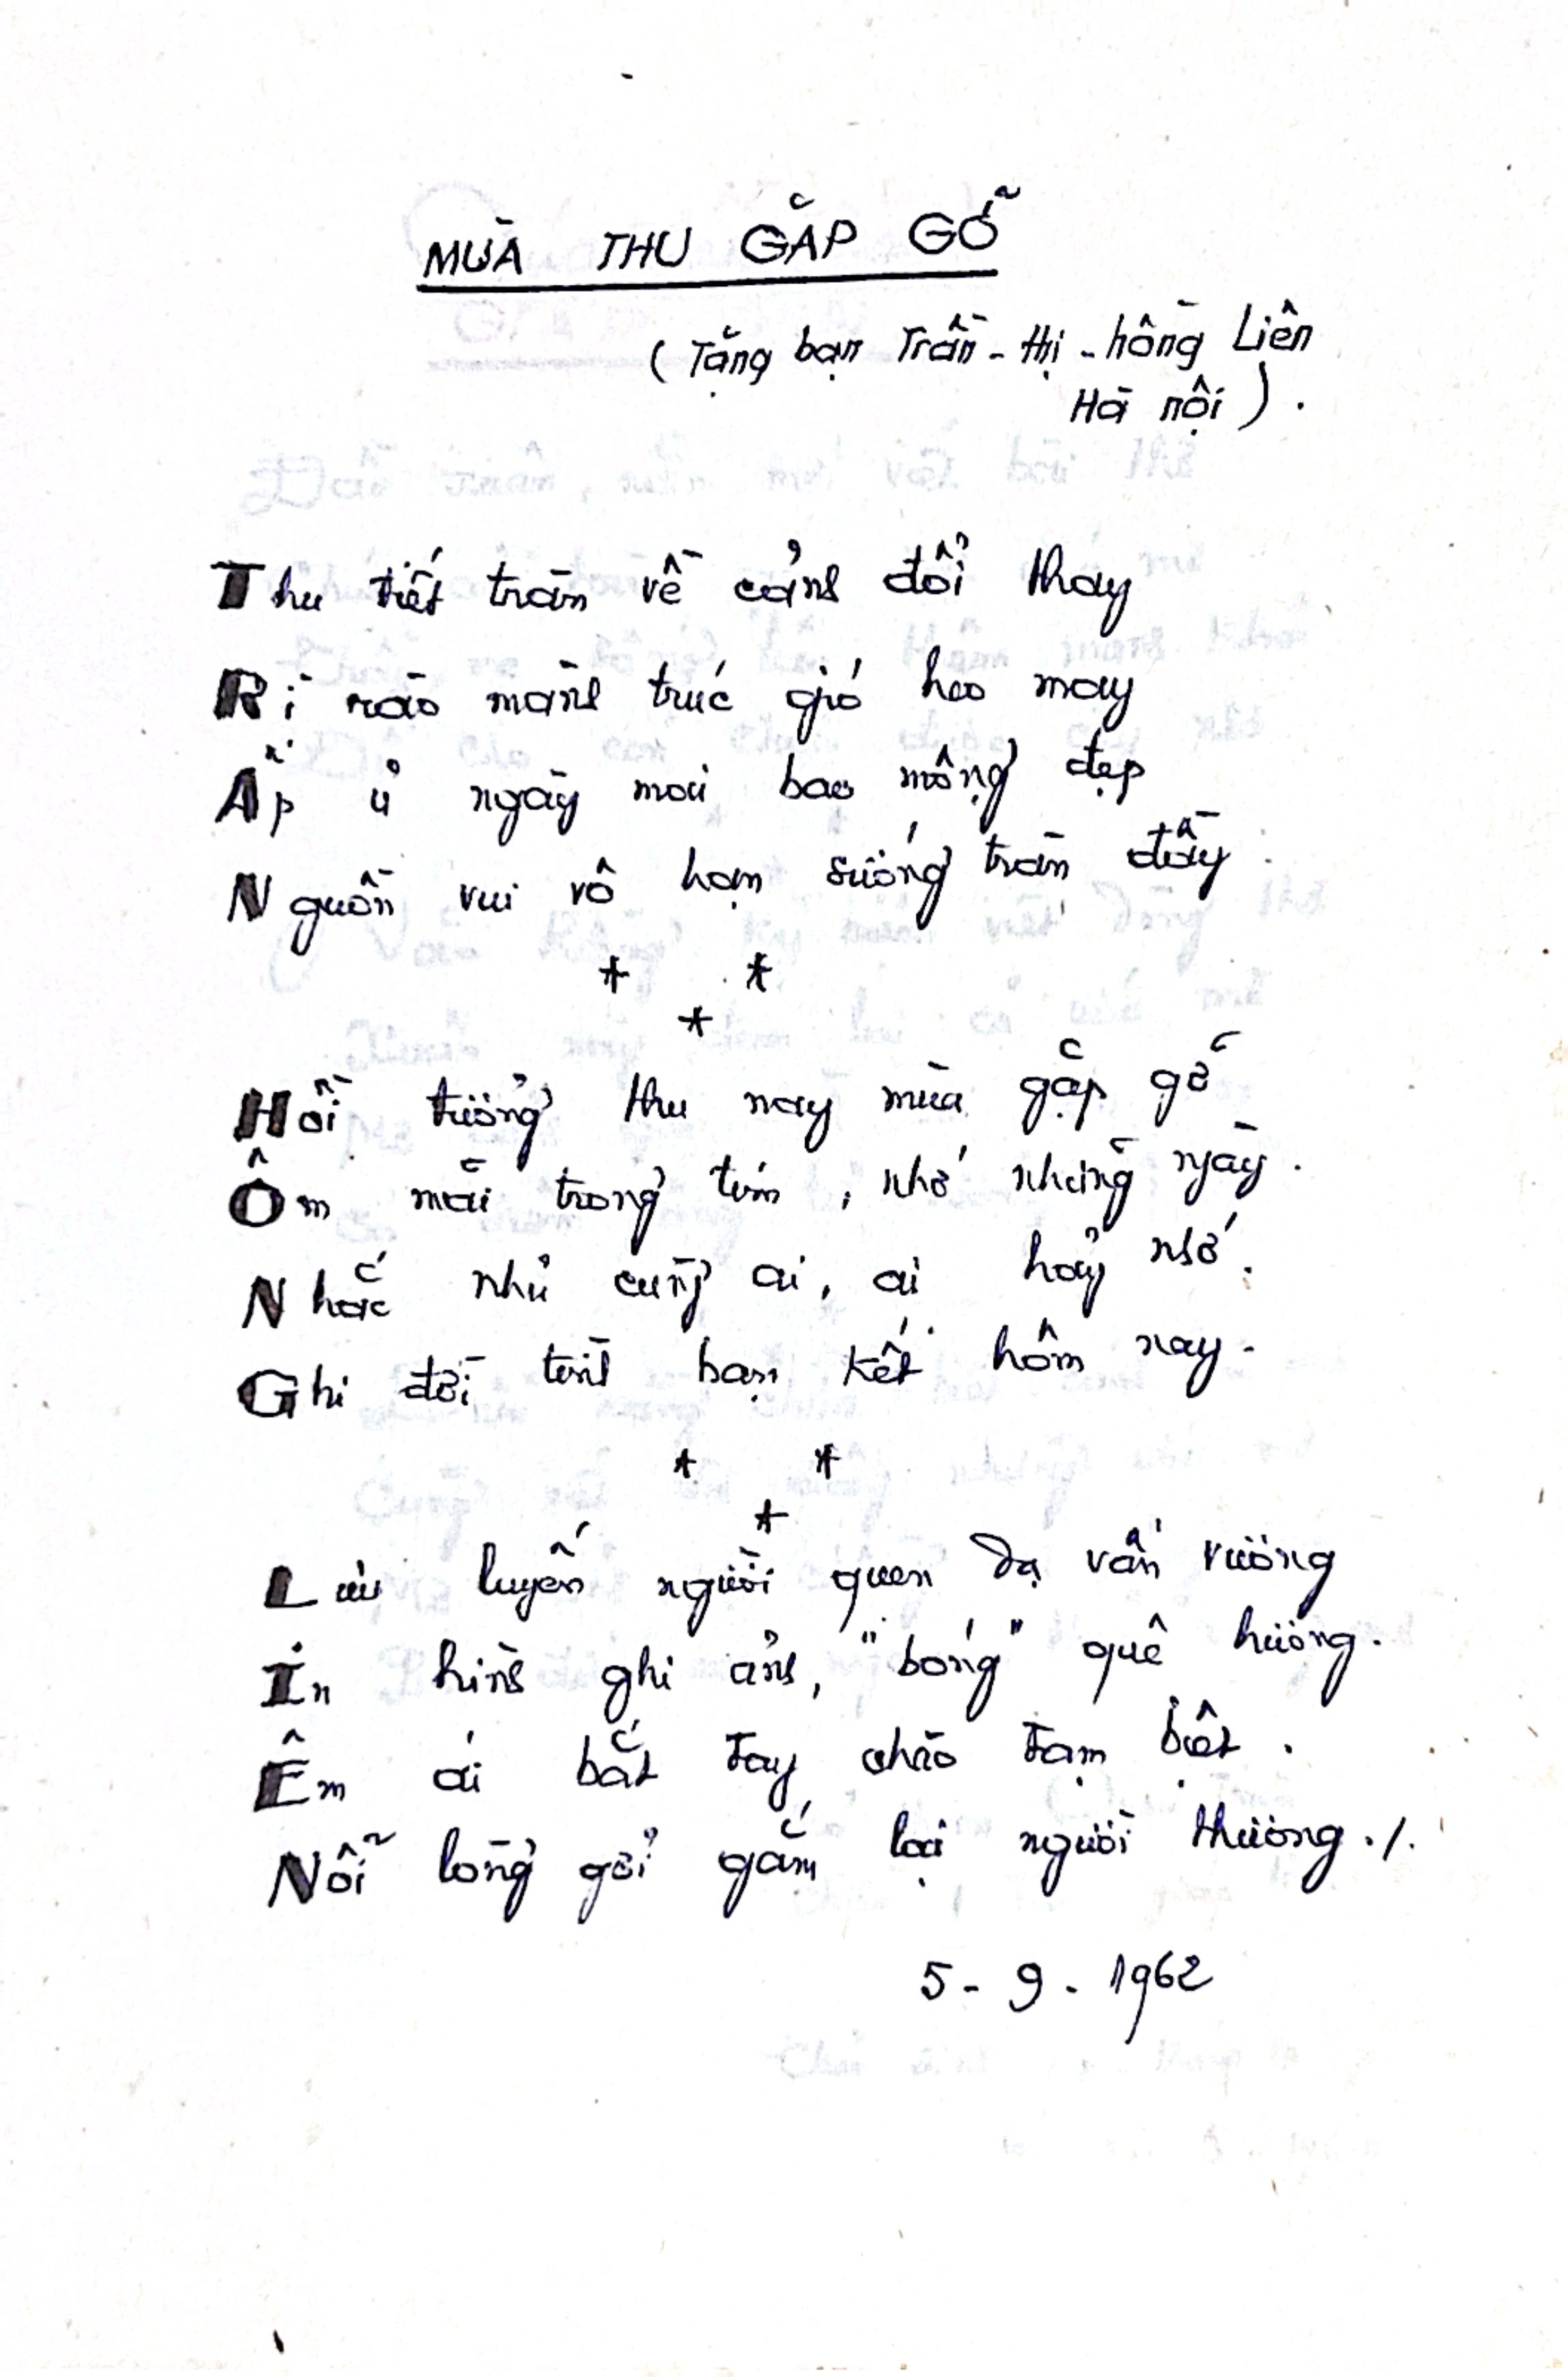 MÙA THU GẶP GỠ
(Tặng bạn Trần - thị - hồng Liên
Hà nội).
Thu tiết tràn về cảnh đổi thay
Rì rào mành trúc gió heo may
Ấp ủ ngày mai bao mộng đẹp
Nguồn vui vô hạn sướng tràn đầy.
* *
*
Hồi tưởng thu nay mùa gặp gỡ
Ôm mãi trong tim, nhớ những ngày.
Nhắc nhủ cùng ai, ai hãy nhớ.
Ghi đời tình bạn kết hôm nay.
* *
*
Lưu luyến người quen dạ vấn vương
In hình ghi ảnh, "bóng" quê hương.
Êm ái bắt tay chào tạm biệt.
Nỗi lòng gởi gắm lại người thương./.
5 - 9 - 1962